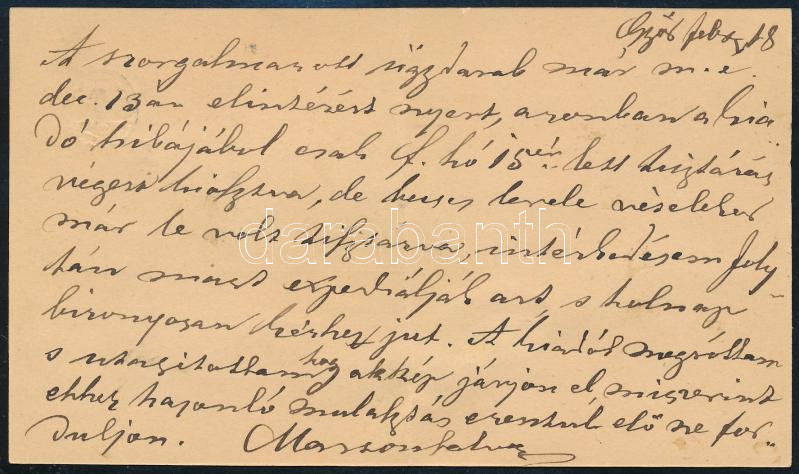 Győr febr 18
A szorgalmazott ügydarab már m. e.
dec. 13án elintézést nyert, azonban a kia-
dó hibájából csak f. hó 15én lett tisztázás
végett kiosztva, de becses levele vételekor
már le volt tisztázva, intézkedésem foly-
tán most expediálják azt, s holnap
bizonyosan kézhez jut. A kiadót megróttam
s utasítottam hogy akkép járjon el, miszerint
ehhez hasonló mulasztás ezentúl elő ne for-
duljon.
darabanth